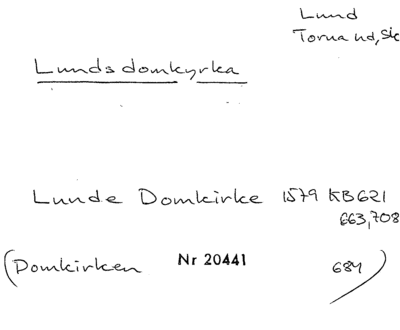 Lund
Torna hd, Sk
Lunds domkyrka
Lunde Domkirke 1579 KB 621
663, 708
(Domkirken Nr 20441 684)